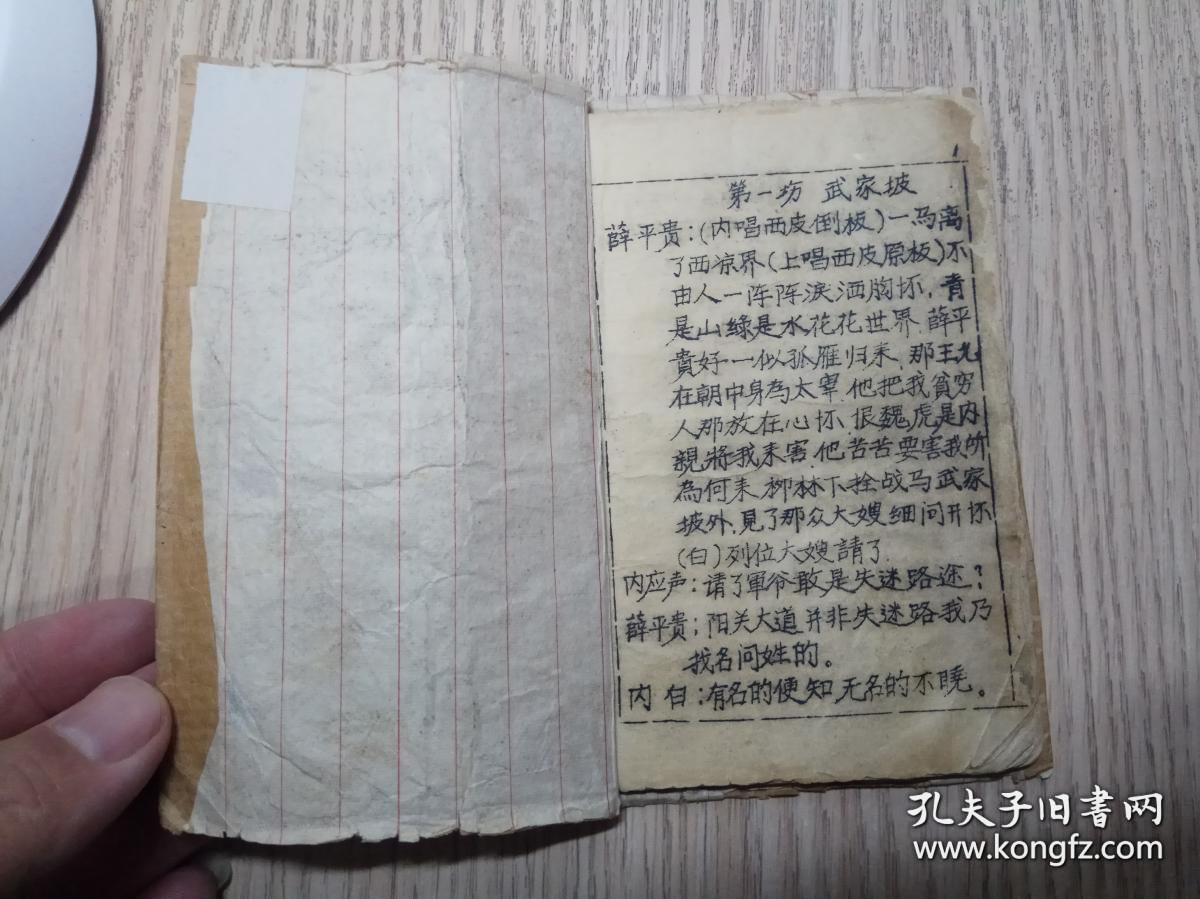 1
第一场 武家坡
薛平贵：(内唱西皮倒板)一马离
了西凉界(上唱西皮原板)不
由人一阵阵泪洒胸怀，青
是山綠是水花花世界 薛平
貴好一似孤雁归来，那王允
在朝中身為太宰，他把我貧穷
人那放在心怀，恨魏虎是内
親將我来害，他苦苦要害我所
為何来，柳林下拴战马武家
坡外，見了那众大嫂细问开怀
(白)列位大嫂請了.
内应声：请了軍爷敢是失迷路途？
薛平贵：阳关大道并非失迷路我乃
找名问姓的。
内白：有名的便知无名的不曉。
孔夫子旧书网
www.kongfz.com